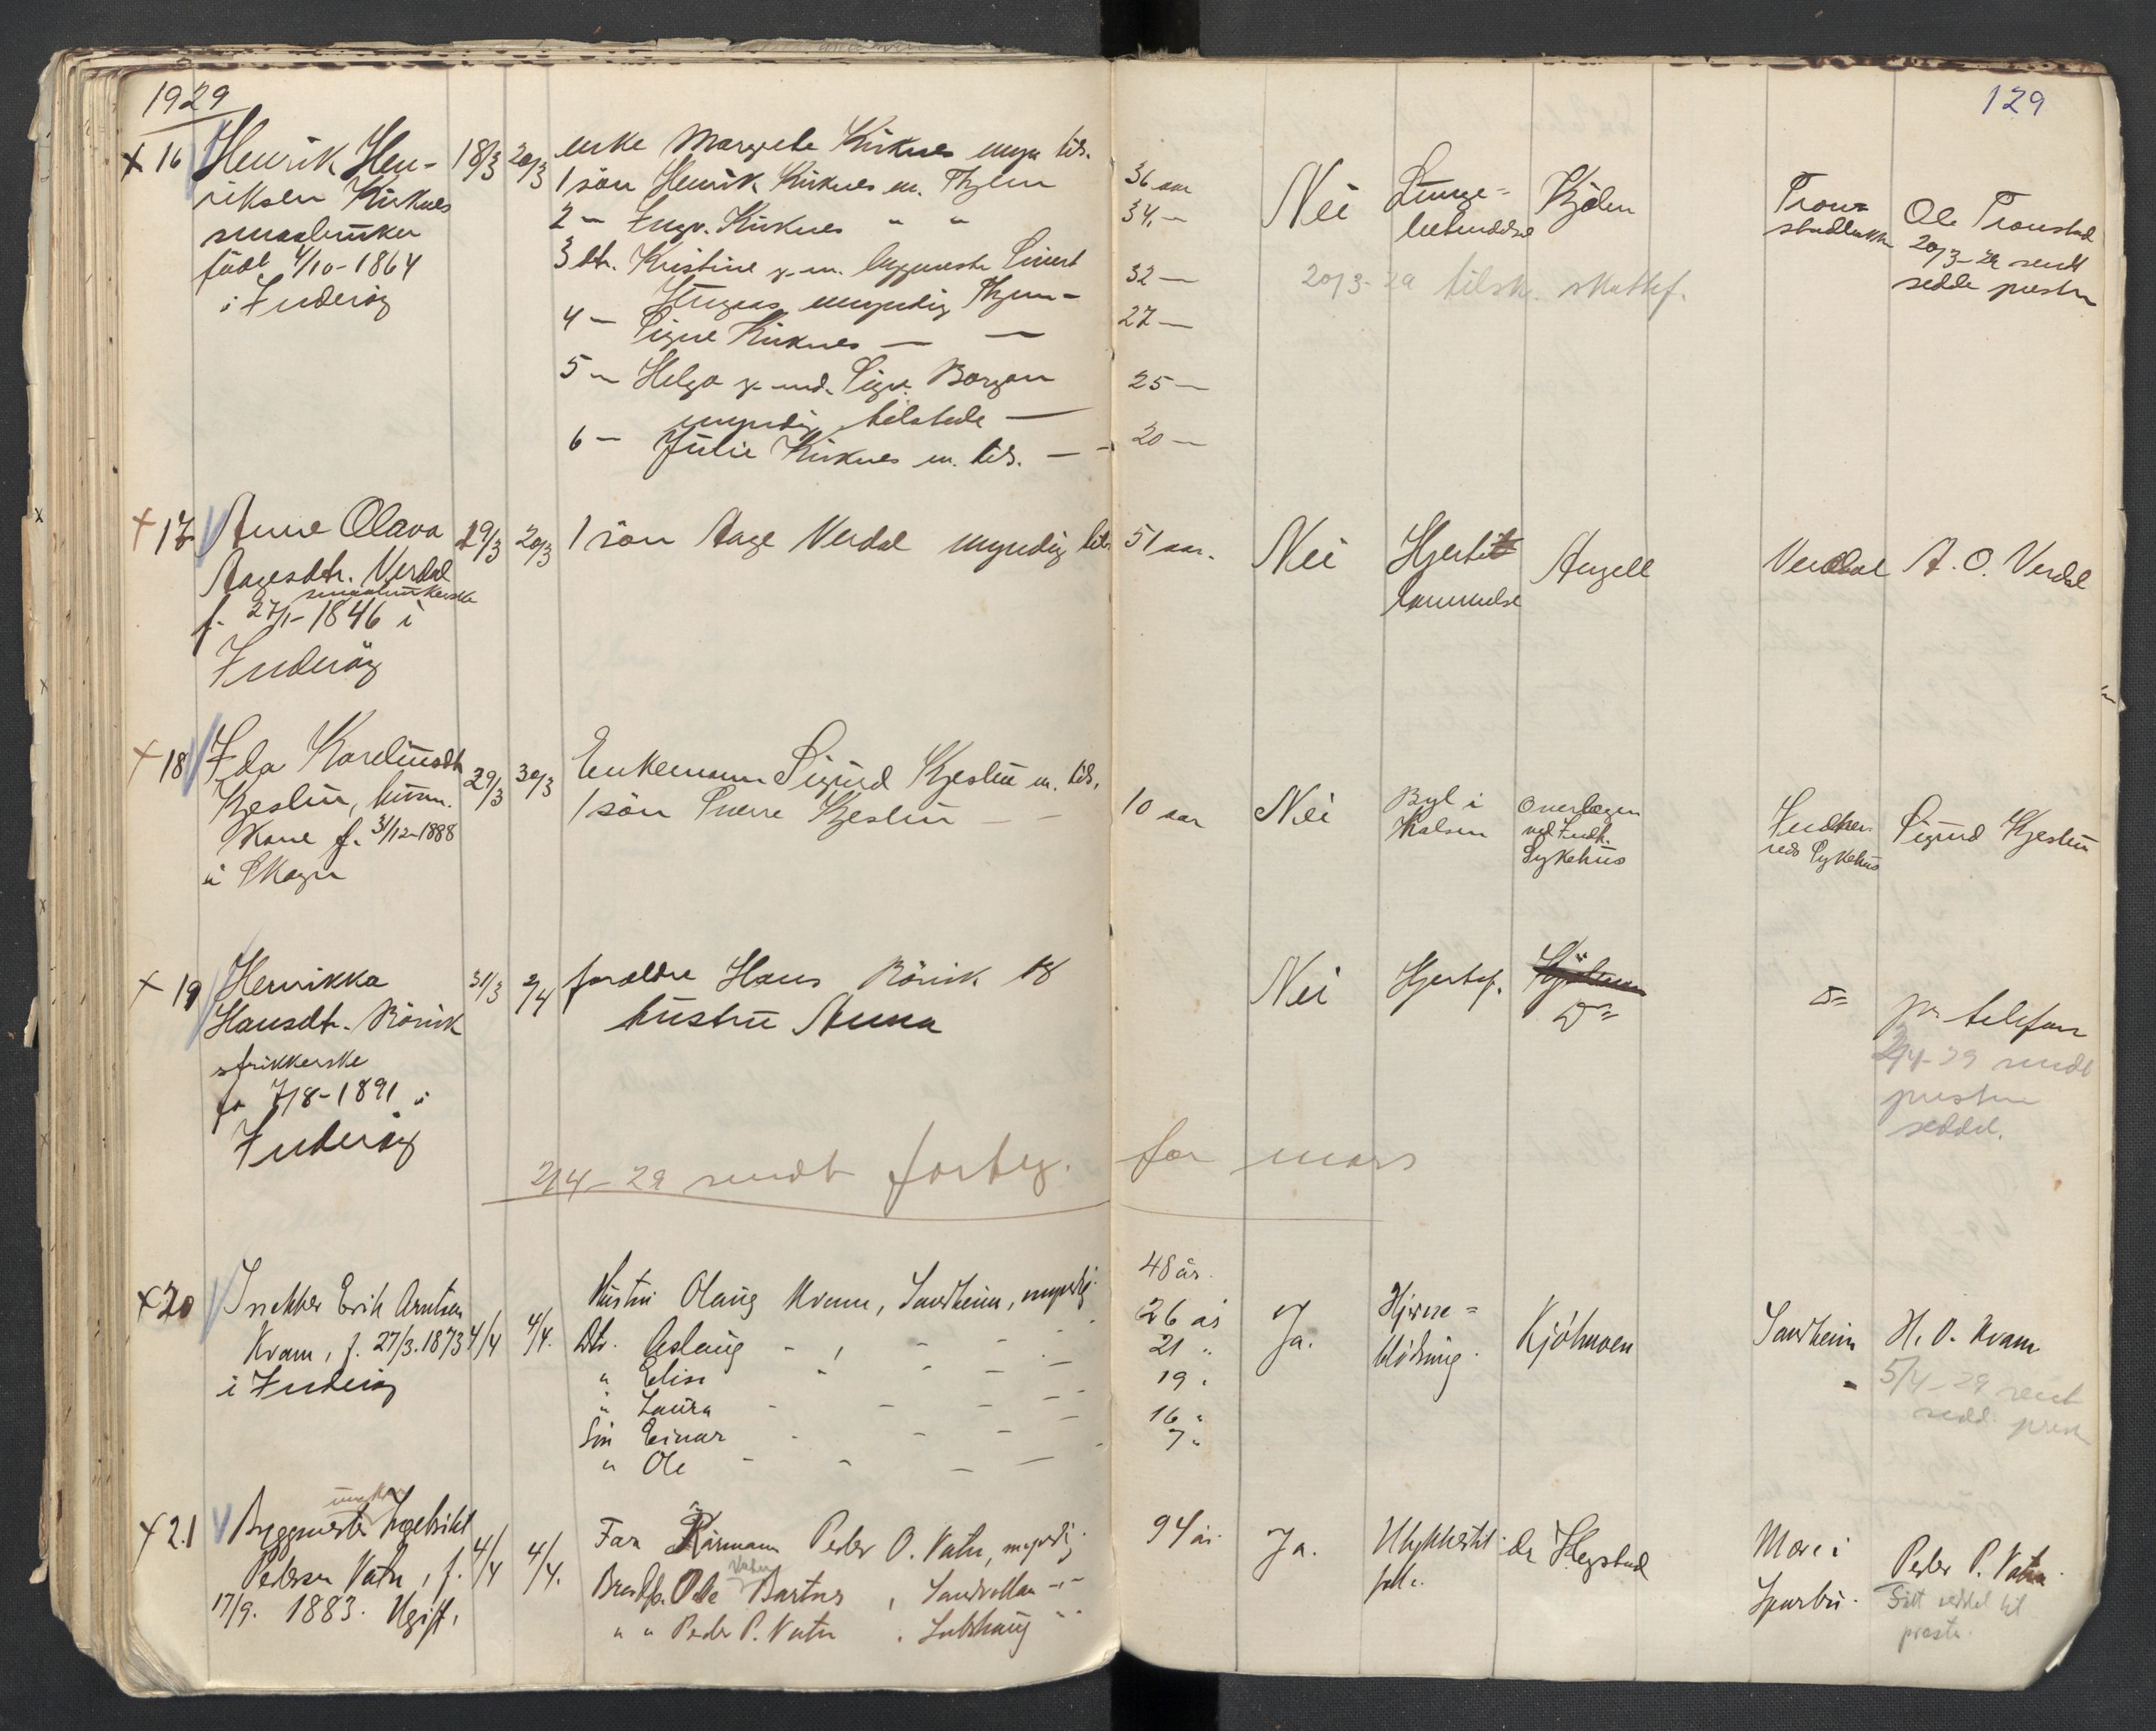 1929
129
+ 16 Henrik Hen-
riksen Kirknes
smaabruker
född 4/10-1864
i Inderöy
18/3 20/3
enke Margrete Kirknes mynd. tils.
1 sön Henrik Kirknes m. Thjem 36 aar
2 — Ingv. Kirknes " " 34 —
3 dtr. Kristine g. m.
myndig Thjem - 32 —
4 — Signe Kirknes — — 27 —
5 — Helga g. med. Sigv. Borgan
myndig tilstede — 25 —
6 — Julie Kirknes m. tils. — 20 —
Nei
Lunge-
betendelse
Kjölen
Tron-
stad
Ole Tronstad
20/3-29 sendt
seddel presten
20/3-29 tilsk. skattef.
+ 17 Anne Olava
Aagesdtr. Verdal
smaabrukerske
f. 27/1-1846 i
Inderöy
19/3 20/3
1 sön Aage Verdal myndig tils 51 aar.
Nei
Hjerte
lammelse
Angell
Verdal
A. O. Verdal
+ 18 Ida Karelinusdtr
Kjeslin, husm.
kone f. 31/12-1888
i Skogn
29/3 30/3
Enkemann Sigurd Kjeslin m. tils.
1 sön Sverre Kjeslin — — 10 aar
Nei
Byl i
Halsen
Overlægen
ved Indh.
Sykehus
Indher-
reds Sykehus
Sigurd Kjeslin
+ 19 Henrikka
Hansdtr. Rönik
strikkerske
f. 7/8-1891 i
Inderöy
31/3 2/4
forældre Hans Rönik og
hustru Anna
Nei
Hjertef.
Do
Do
pr. telefon
2/4-29 sendt
presten
seddel.
2/4-29 sendt forteg. for mars
+ 20 Snekker Erik Arntsen
Kvam, f. 27/3. 1873
i Inderöy
4/4 4/4.
Hustru Olaug Kvam, Sandheim, myndig. 48 år.
Dtr. Aslaug - , - - - 26 år
" Elise - - - — 21 "
" Laura - - - — 19 "
Sön Einar - - - — 16 "
" Ole - - — — 7 "
Ja.
Hjerne-
blödning.
Kjölmoen
Sandheim
H. O. Kvam
5/4-29 sendt
sedd. prest
+ 21 Byggmester Ingebrikt
ungkar
Pedersen Vatn, f.
17/9. 1883. Ugift.
4/4 4/4.
Far Kårmann Peder O. Vatn, myndig. 94 år.
Ole Bartnes, Sandvollan -"-
Vatn
" " Peder P. Vatn
Ja.
Ulykkestil-
felle.
dr Hegstad
Mære i
Sparbu.
Peder P. Vatn
Sitt seddel til
presten.